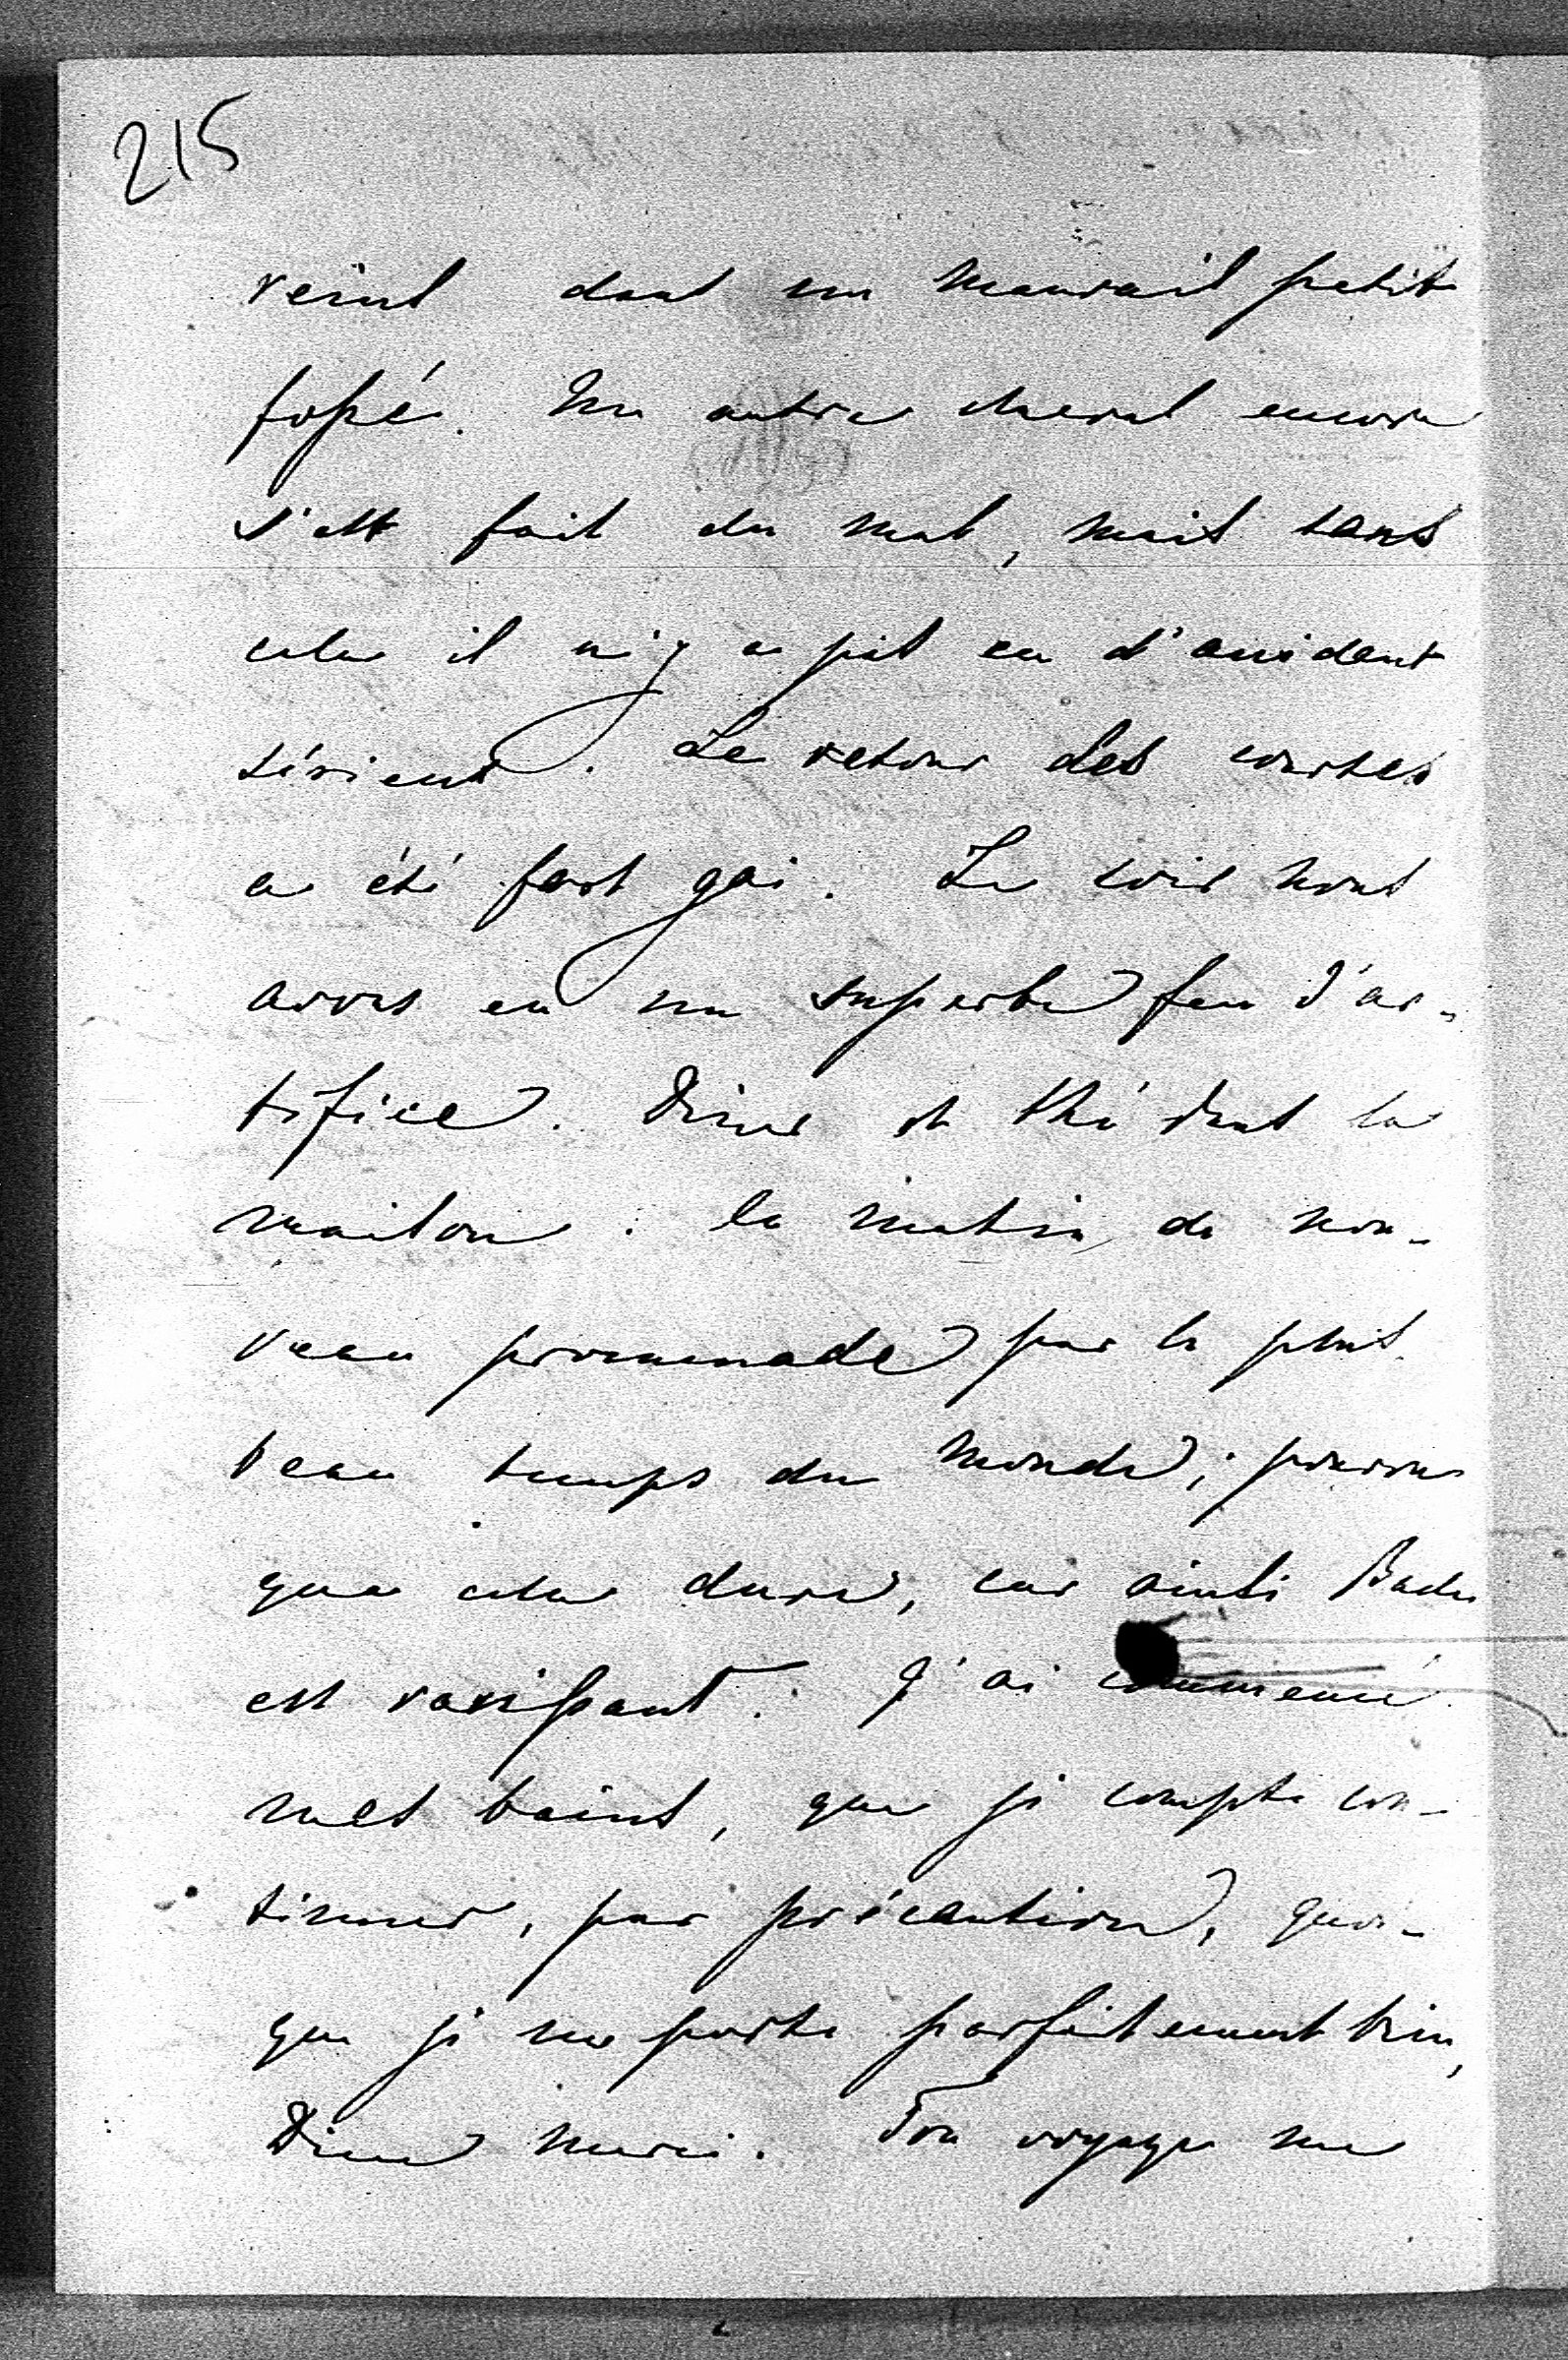 215
reins dans un mauvais petit
fossé. Un autre cheval encore
s'est fait du mal, mais sans
cela il n'y a pas eu d'accident
sérieux. Le retour des courses
a été fort gai. Le soir nous
avons eu un superbe feu d'ar-
tifice. Diner et thé dans la
maison. le matin de nou-
veau promenade par le plus
beau temps du monde; pourvu
que cela dure, car ainsi Bade
est ravissant. J'ai commencé
mes bains, que je compte con-
tinuer, par précaution, quoi-
que je me porte parfaitement bien,
Dieu merci. Ton voyage me